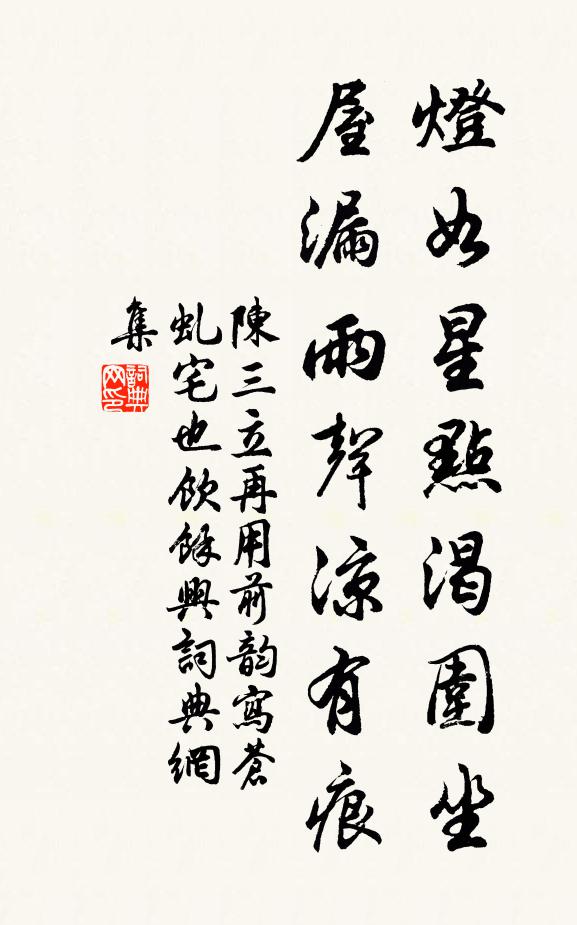 燈如星點渴圍坐
屋漏雨聲凉有痕
陳三立再用前韵寫蒼
虬宅也飲餘興詞典網
集
詞典
网印